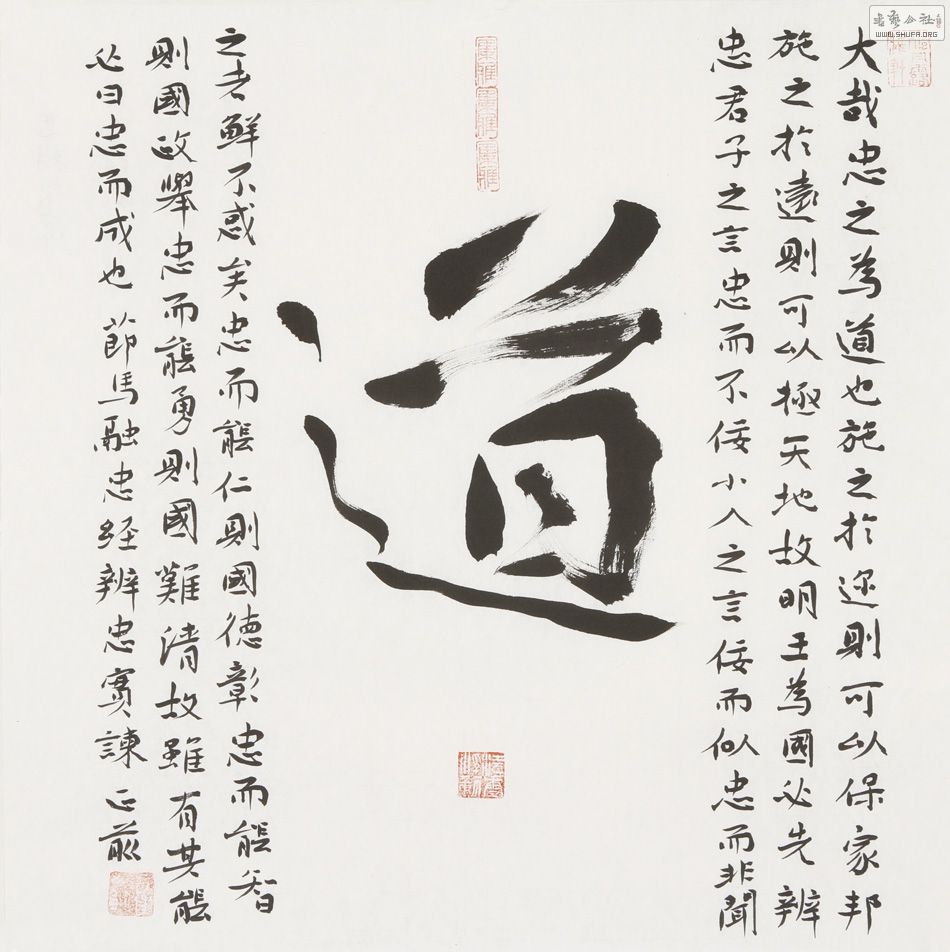 大哉忠之為道也施之於迩則可以保家邦
施之於遠則可以極天地故明王為國必先辨
忠君子之言忠而不佞小人之言佞而似忠而非聞
道
之者鮮不惑矣忠而能仁則國德彰忠而能智
則國政舉忠而能勇則國難清故雖有其能
必曰忠而成也 節馬融忠經辨忠
書藝公社
WWW.SHUFA.ORG